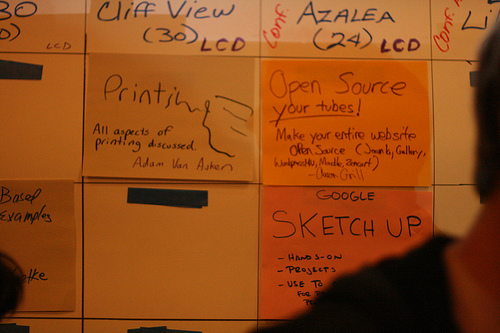 30
LCD
Cliff View
(30) LCD
Conf.
AZALEA
(24) LCD
Conf.
Li
Printing
All aspects of
printing discussed.
Adam Van
Open Source
your tubes!
Make your entire website
Open Source (
Gallery,
Moodle,
Grill
Based
Examples
GOOGLE
SKETCH UP
- HANDS-ON
- PROJECTS
- USE TO
FOR